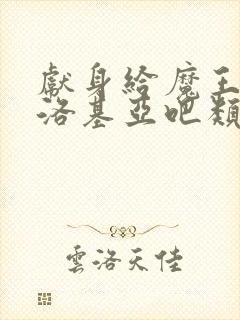 獻身給魔王
洛基亞吧類
雲洛天佳